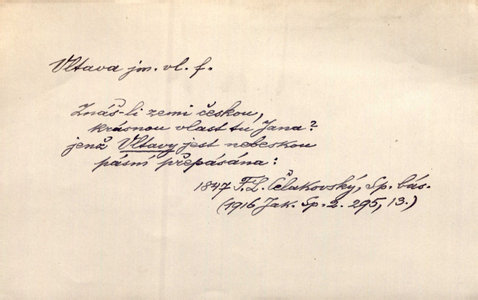 Vltava jm. vl. f.
Znáš-li zemi českou,
krásnou vlast tu Jana?
jenž Vltavy jest nebeskou
pásní přepásána:
1847 F. L. Čelakovský, Sp. bás.
(1916 Jak. Sp. 2. 295, 13.)